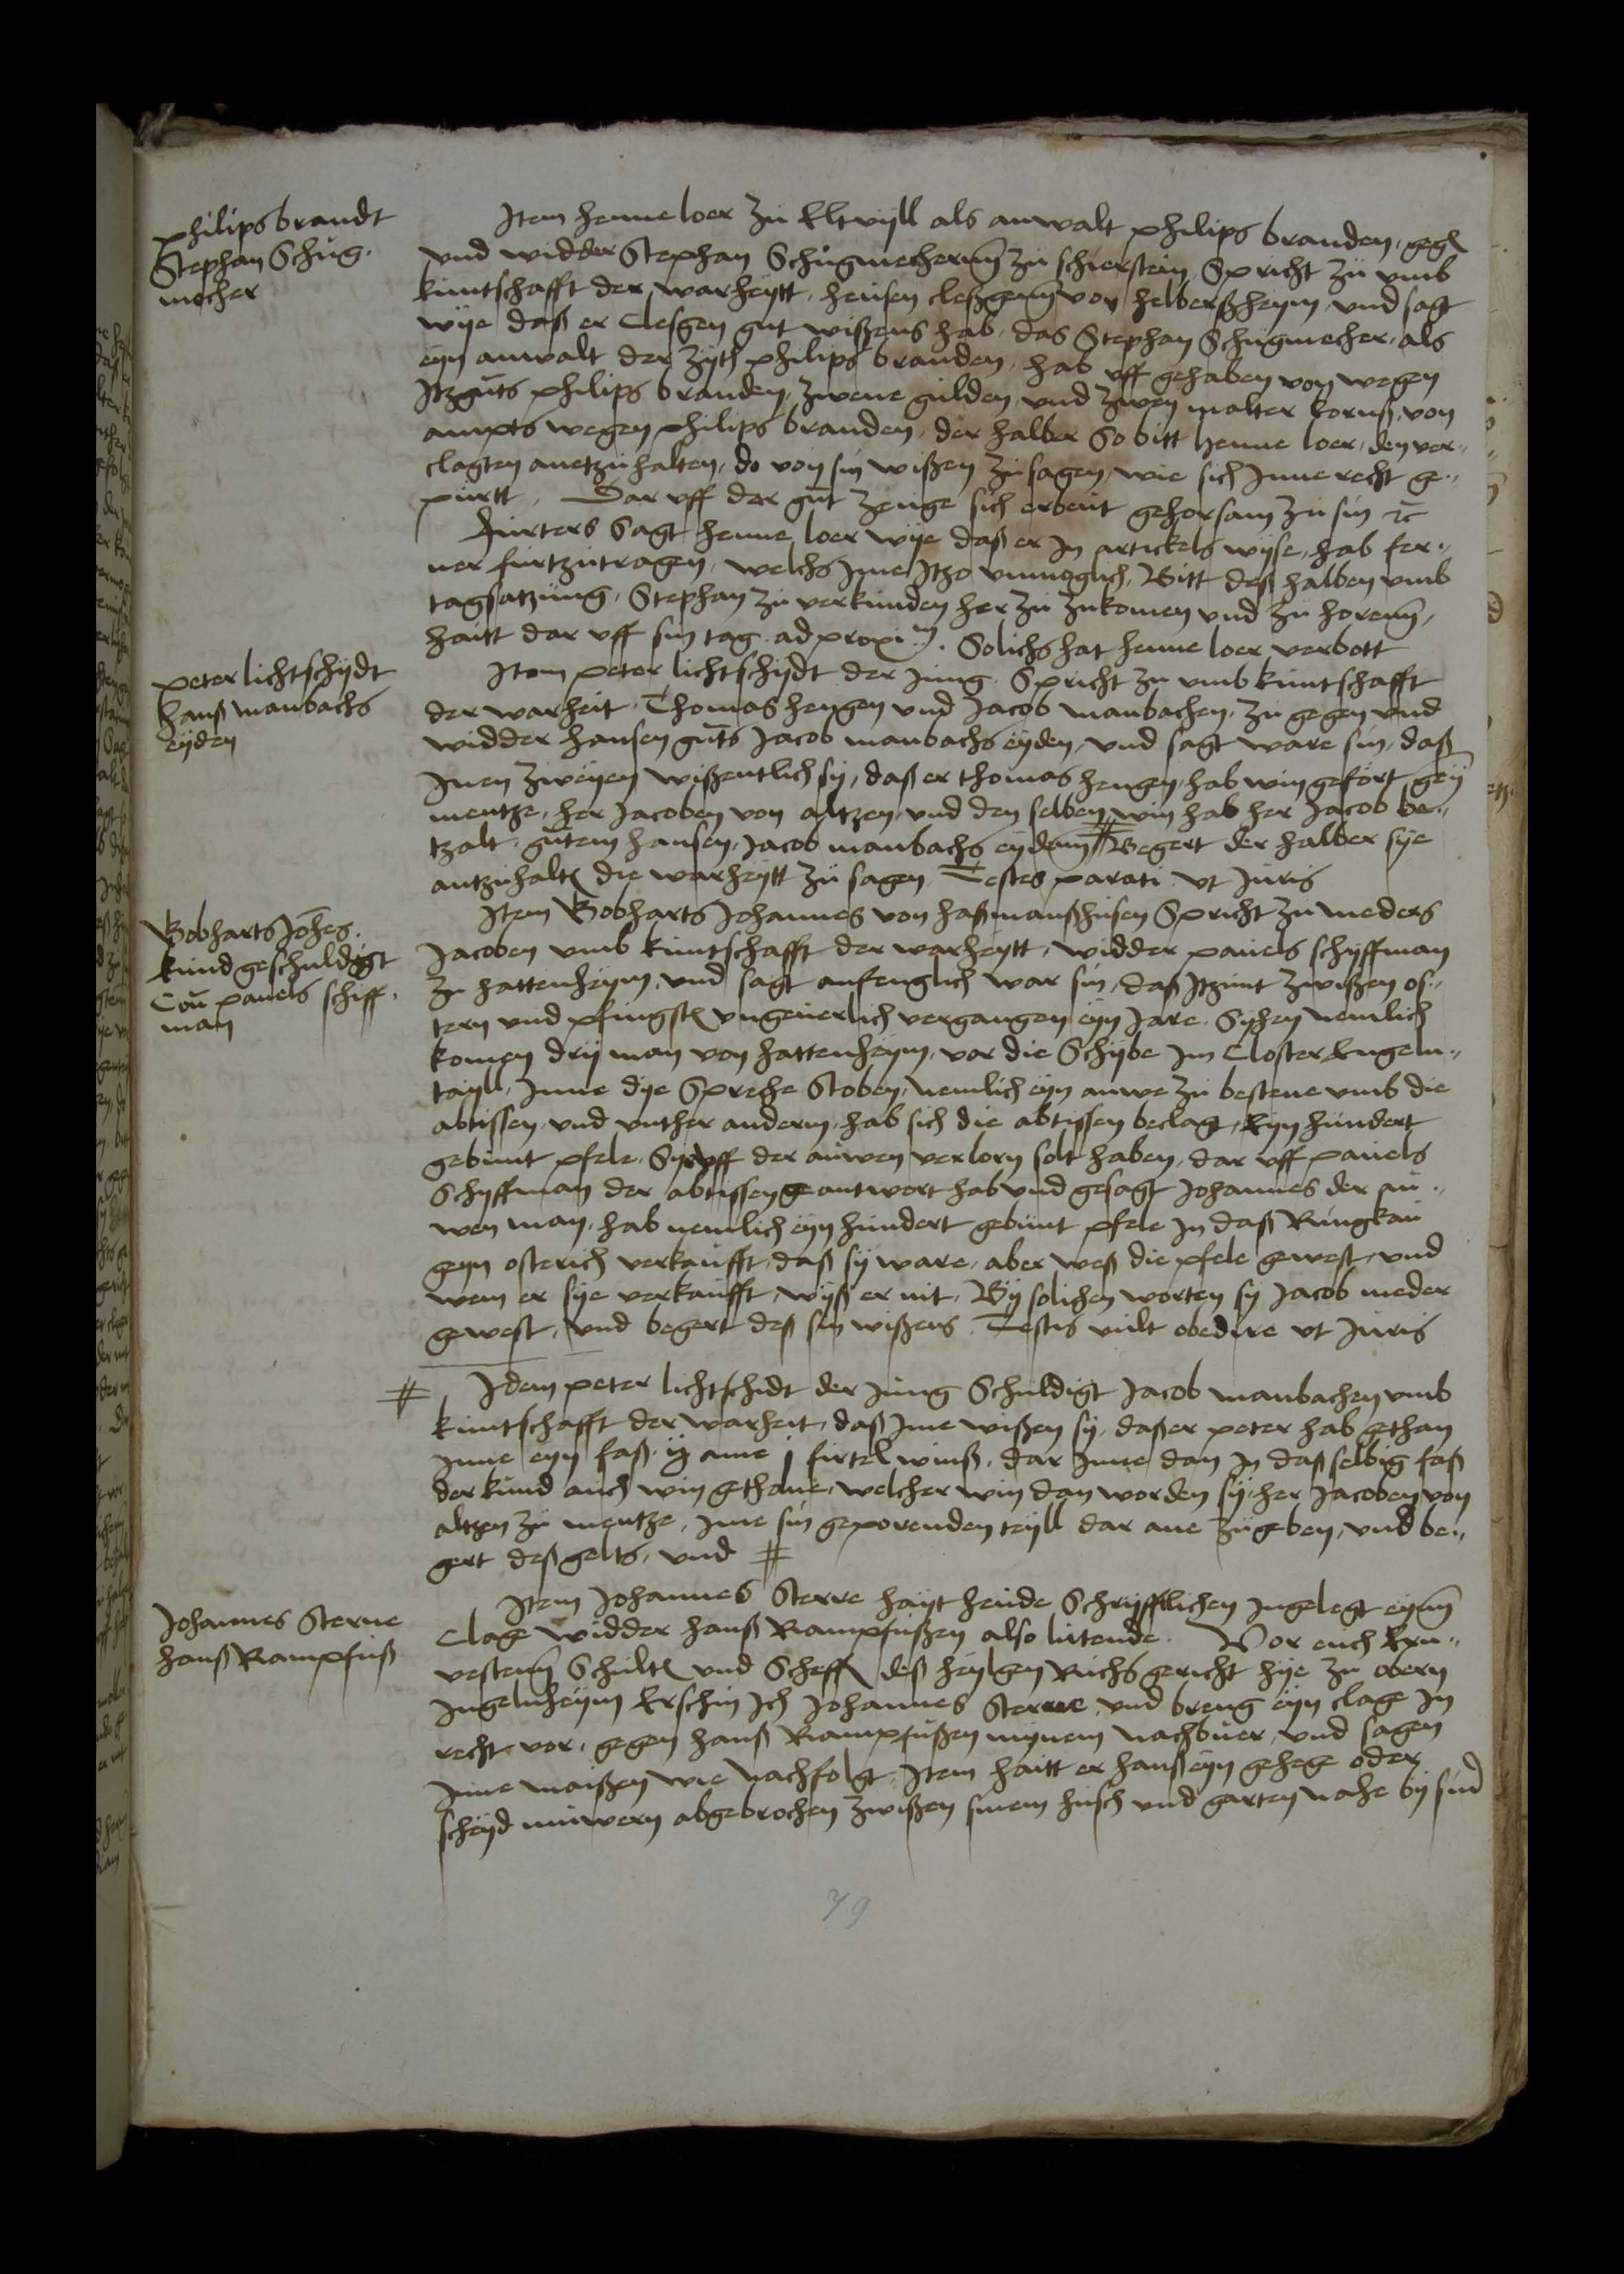 philips brandt
Stephan Schug¬
mecher
Item henne loer zu Eltvyll als anwalt philips branden, gegen
und widder Stephan Schugmechernn zu schierstein Spricht zu umb
kuntschafft der warheytt, heusen cleßgenn von helberßheym, und sagt
wye daß er Clesgen gut wißens hab, das Stephan Schugmecher, als
eyn anwalt der zyth philips branden, hab uff gehaben von wegen
Itzguts philips branden, zwene gulden, und zwey malter kornß, von
ampts wegen philips branden, der halber So bitt henne loer, den ver¬
clagten anetzuhalten, do von sin wißen zu sagen, wie sich Inne recht ge¬
purtt, Dar uff der gut zeuge sich erbeut gehorsam zu sin etc
Furters Sagt henne loer wye daß er In artickels wyse, hab fer¬
ner furtzutragen, welchs Ime Itzo unmoglich, Bitt deß halben umb
tagsatzung, Stephan zu verkunden her zu zukomen und zu horenn,
haitt dar uff sin tag ad proxim. Solichs hat henne loer verbott
peter lichtschydt
hanß manbachs
eyden
Item peter lichtschydt der jung Spricht zu umb kuntschafft
der warheit, Thomas hengen und Jacob manbachen, zu gegen und
widder hansen guts Jacob manbachs eyden, und sagt ware sin, daß
Inen zweyen wißentlich sy, daß er thomas hengen, hab win gefort gen
mentze, her Jacoben von altzen, und den selben win hab her Jacob be¬
tzalt, gutem hansen, Jacob manbachs eydenn # Begert der halber sye
antzuhalten die warheytt zu sagen Testes parati ut Juris
Bobharts Johes
kund geschuldigt
Con pauels schiff¬
man
Item Bobharts Johannes von haßmanßhusen Spricht zu meders
Jacoben umb kuntschafft der warheytt, widder pauels schyffman
zu hattenheym, und sagt anfenglich war sin, daß Itzunt zwißen os¬
tern und pfingsten ungeuerlich vergangen eyn Jare, Syhen nemlich
komen dry man von hattenheym, vor die Schybe Im Closter Engeln¬
tayll, Inne dye Sprehe Stoben, nemlich eyn auwe zu bestene umb die
abtissen, und unther anderm, hab sich die abtissen beclagt, Eyn hundert
gebunt pfele, Sye uff der auwen verlorn solt haben, dar uff pauels
Schyffman der abtissen geantwort hab und gesagt Johannes der au¬
wen man, hab nemlich eyn hundert gebunt pfele In daß Ringkau
geyn osterich verkaufft, daß sy ware, aber weß die pfele gewest, und
wem er sye verkaufft, wyß er nit, By solichen worten sy Jacob meder
gewest, und begert deß sin wißens. Testis vult obedire ut Juris
# Idem peter lichtschidt der jung Schuldigt Jacob manbachen umb
kuntschafft der warheit, daß Ime wißen sy, daß er peter hab gethan
Inne eyn faß ij ame j firtel winß, dar Inne dan In daß selbig faß
der kund auch win gethane, welcher win dan worden sy her Jacoben von
altzen zu mentze, Ime sin geporenden teyll dar ane zu geben, und be¬
gert deß gelts, und #
Johannes Sterre
hanß Rampfuß
Item Johannes Sterre hayt heude Schryfftlichen Ingelegt eynn
Clage widder hanß Rampfußen also lutende. Vor euch Ern¬
vestenn Schulten und Scheffen deß heylgen Richs gericht hye zu obern
Ingelnheym Erschin Ich Johannes Sterre, und breng eyn clage In
recht vor, gegen hanß Rampfußen mynem nachbuer, und sagen
Inne maißen wie nachfolgt, Item haitt er hanß eyn gehege oder
scheyd muwern abgebrochen zwißen sinem husch und garten nahe by sind
79